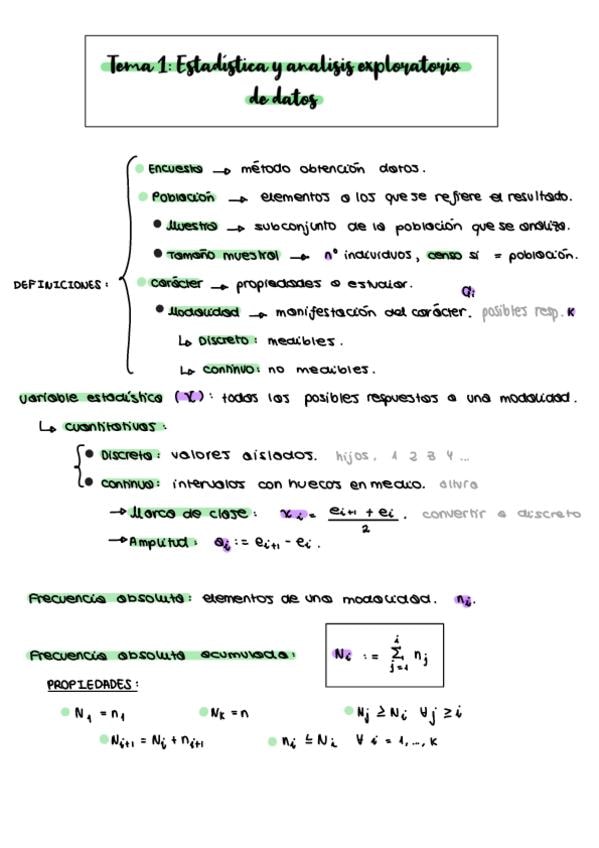 Tema 1: Estadística y analisis exploratorio
de datos
DEFINICIONES:
Encuesta → método obtención datos.
Población → elementos a los que se refiere el resultado.
Muestra → subconjunto de la población que se analiza.
Tamaño muestral → nº individuos, censo si = población.
Carácter → propiedades a estudiar.
Modalidad → manifestación del carácter. posibles resp. K
ai
↳ Discreto: medibles.
↳ Continuo: no medibles.
Variable estadística (X): todas las posibles respuestas a una modalidad.
↳ Cuantitativas:
Discreta: valores aislados. hijos. 1 2 3 4 ...
Continua: intervalos con huecos en medio. altura
→ Marca de clase: xi = (ei+1 + ei) / 2. convertir a discreto
→ Amplitud: ai := ei+1 - ei.
Frecuencia absoluta: elementos de una modalidad. ni.
Frecuencia absoluta acumulada: Ni := Σ nj
i
j=1
PROPIEDADES:
N1 = n1 NK = n Nj ≥ Ni ∀j ≥ i
Ni+1 = Ni + ni+1 ni ≤ Ni ∀ i = 1, ..., K